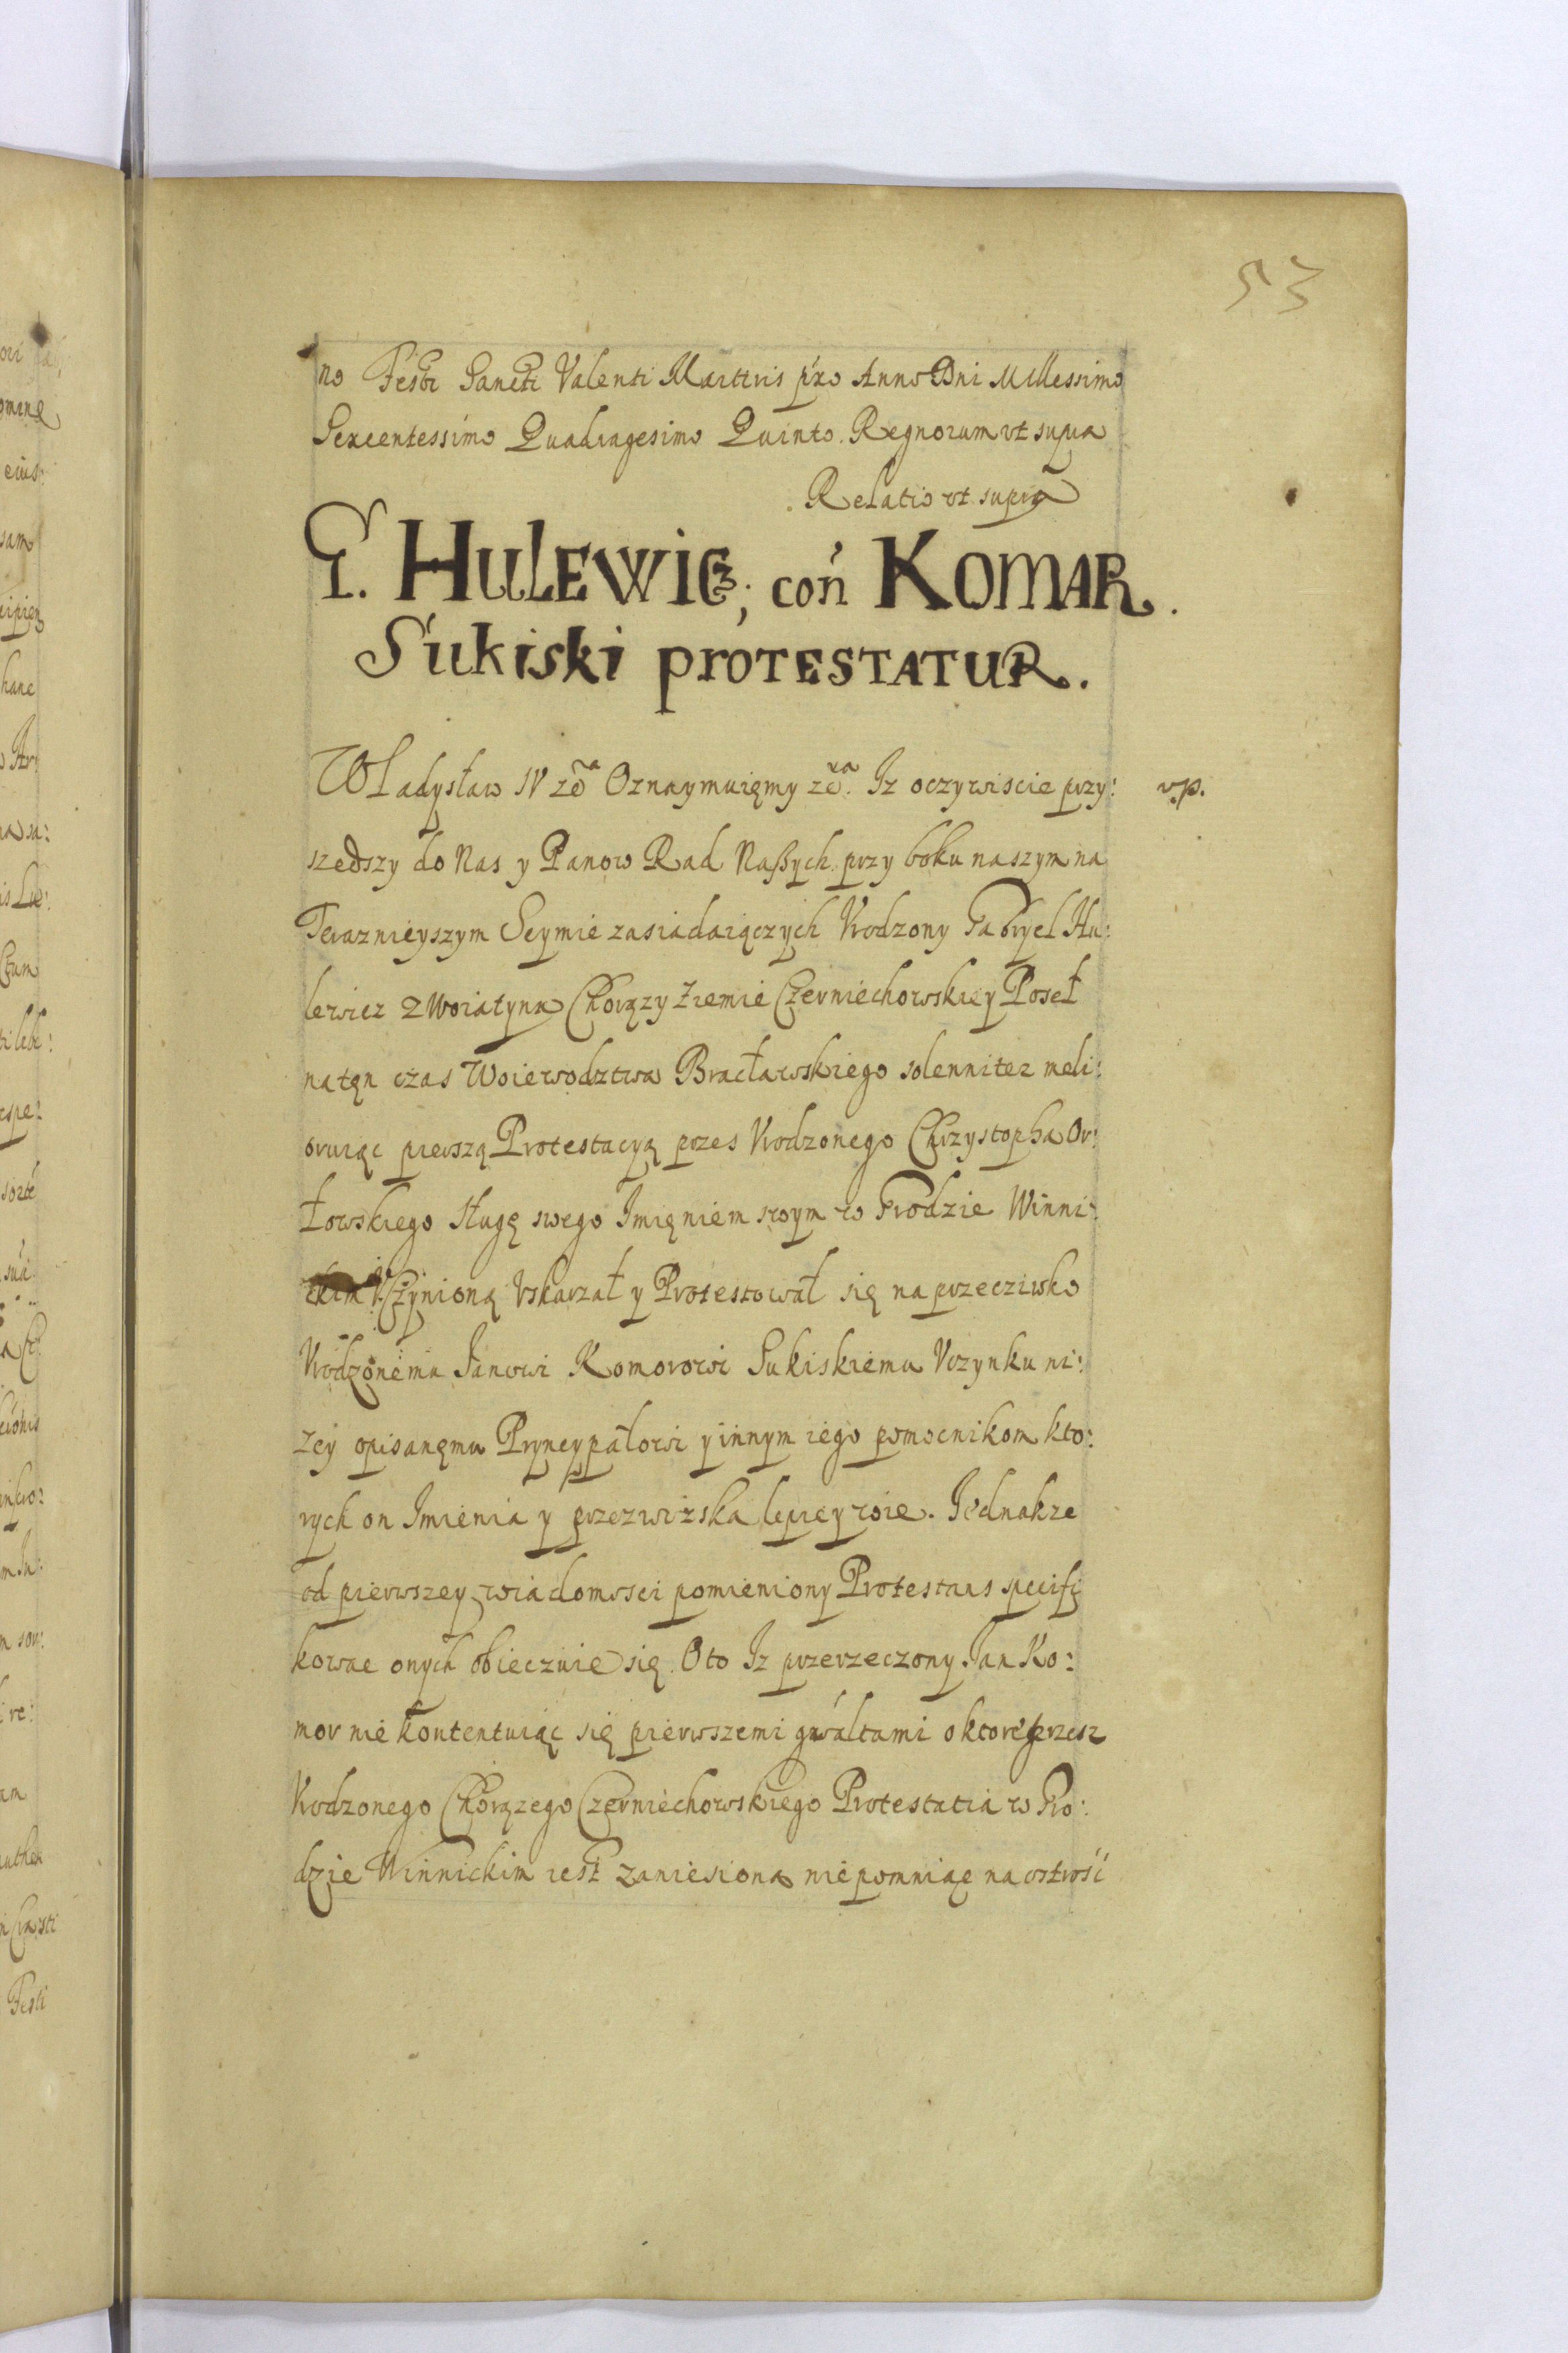 53
no Festi Sancti Valenti Martiris pro Anno Dni Millessimo
Sexcentessimo Quadragesimo Quinto. Regnorum vt supra
Relatio vt supra
G. HULEWICZ, con KOMAR.
Sukiski PROTESTATUR.
Władysław IV Oznaymuięmy Iz oczywiscie przy:
v.p.
szedszy do Nas y Panow Rad Naszych przy boku naszym na
Teraznieyszym Seymie zasiadaiączych Vrodzony Gabryel Hu:
lewicz Z Woiatyna Chorązy Ziemie Czerniechowskiey Poseł
natęn czas Woiewodztwa Bracławskiego solenniter meli:
oruiąc pierszą Protestacyą przes Vrodzonego Chrzystopha Or:
łowskiego sługę swego Imięniem swym w Grodzie Winni:
ckim Vczynioną Vskarzał y Protestował się na przecziwko
Vrodzonemu Janowi Komorowi Sukiskiemu Vczynku ni:
zey opisanęmu Pryncypałowi y innym iego pomocnikom kto:
rych on Imienia y przezwiska lepiey wie. Jednakze
od pierwszey wiadomosci pomieniony Protestans specifi
kowac onych obiecznie się. Oto Iz przerzeczony Jan Ko:
mor nie kontentuiąc się pierwszemi gwałtami o ktore przesz
Vrodzonego Chorązego Czerniechowskiego Protestatia w Gro:
dzie Winnickim iest zaniesiona niepomniąc na ostrość